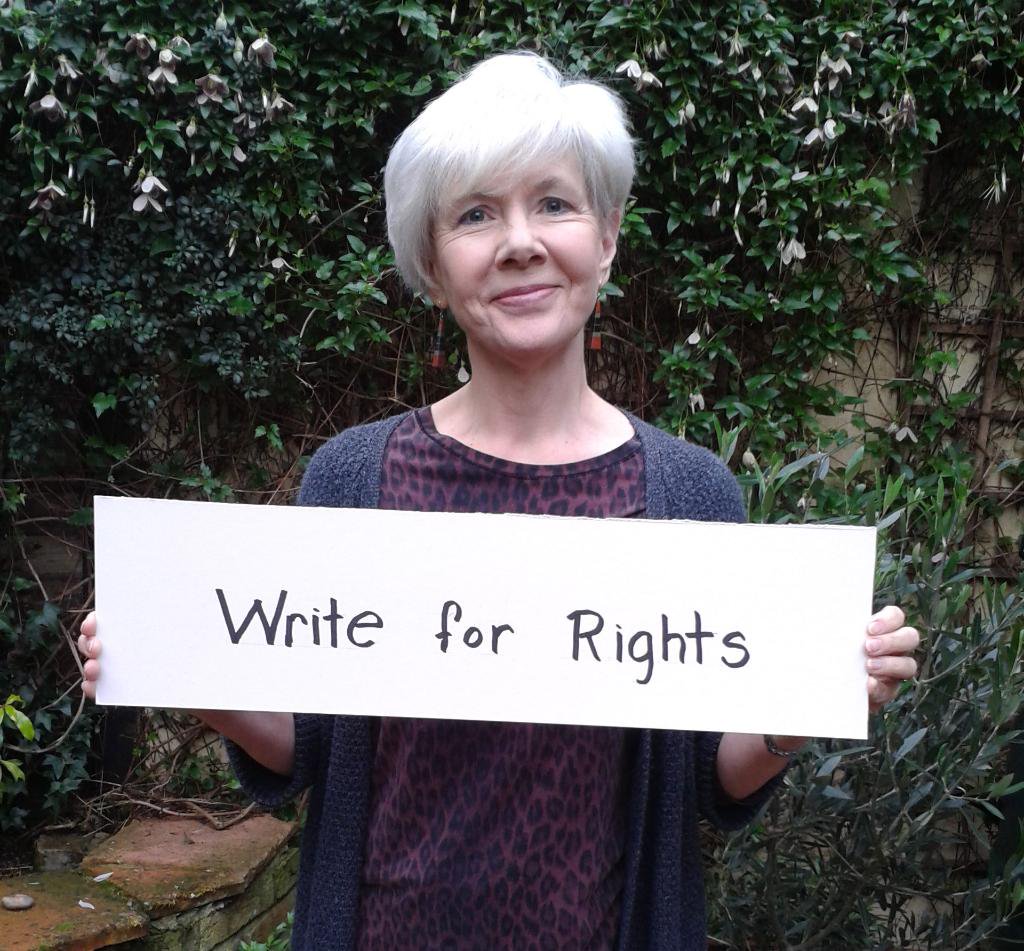 Write for Rights